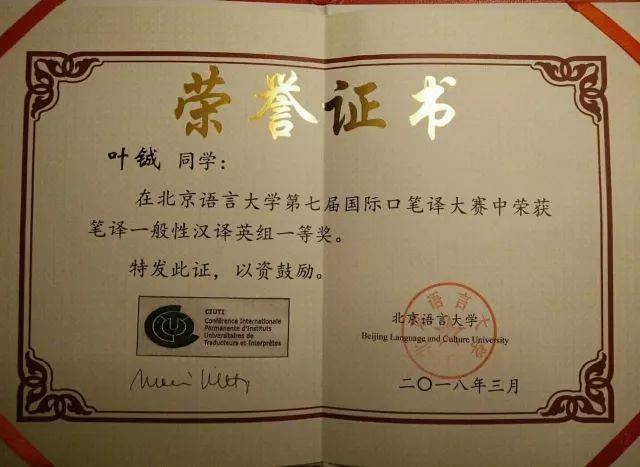 荣誉证书
叶铖 同学：
在北京语言大学第七届国际口笔译大赛中荣获
笔译一般性汉译英组一等奖。
特发此证，以资鼓励。
CIUTI
Conférence Internationale
Permanente d'Instituts
Universitaires de
Traducteurs et Interprètes
北京语言大学
Beijing Language and Culture University
二〇一八年三月